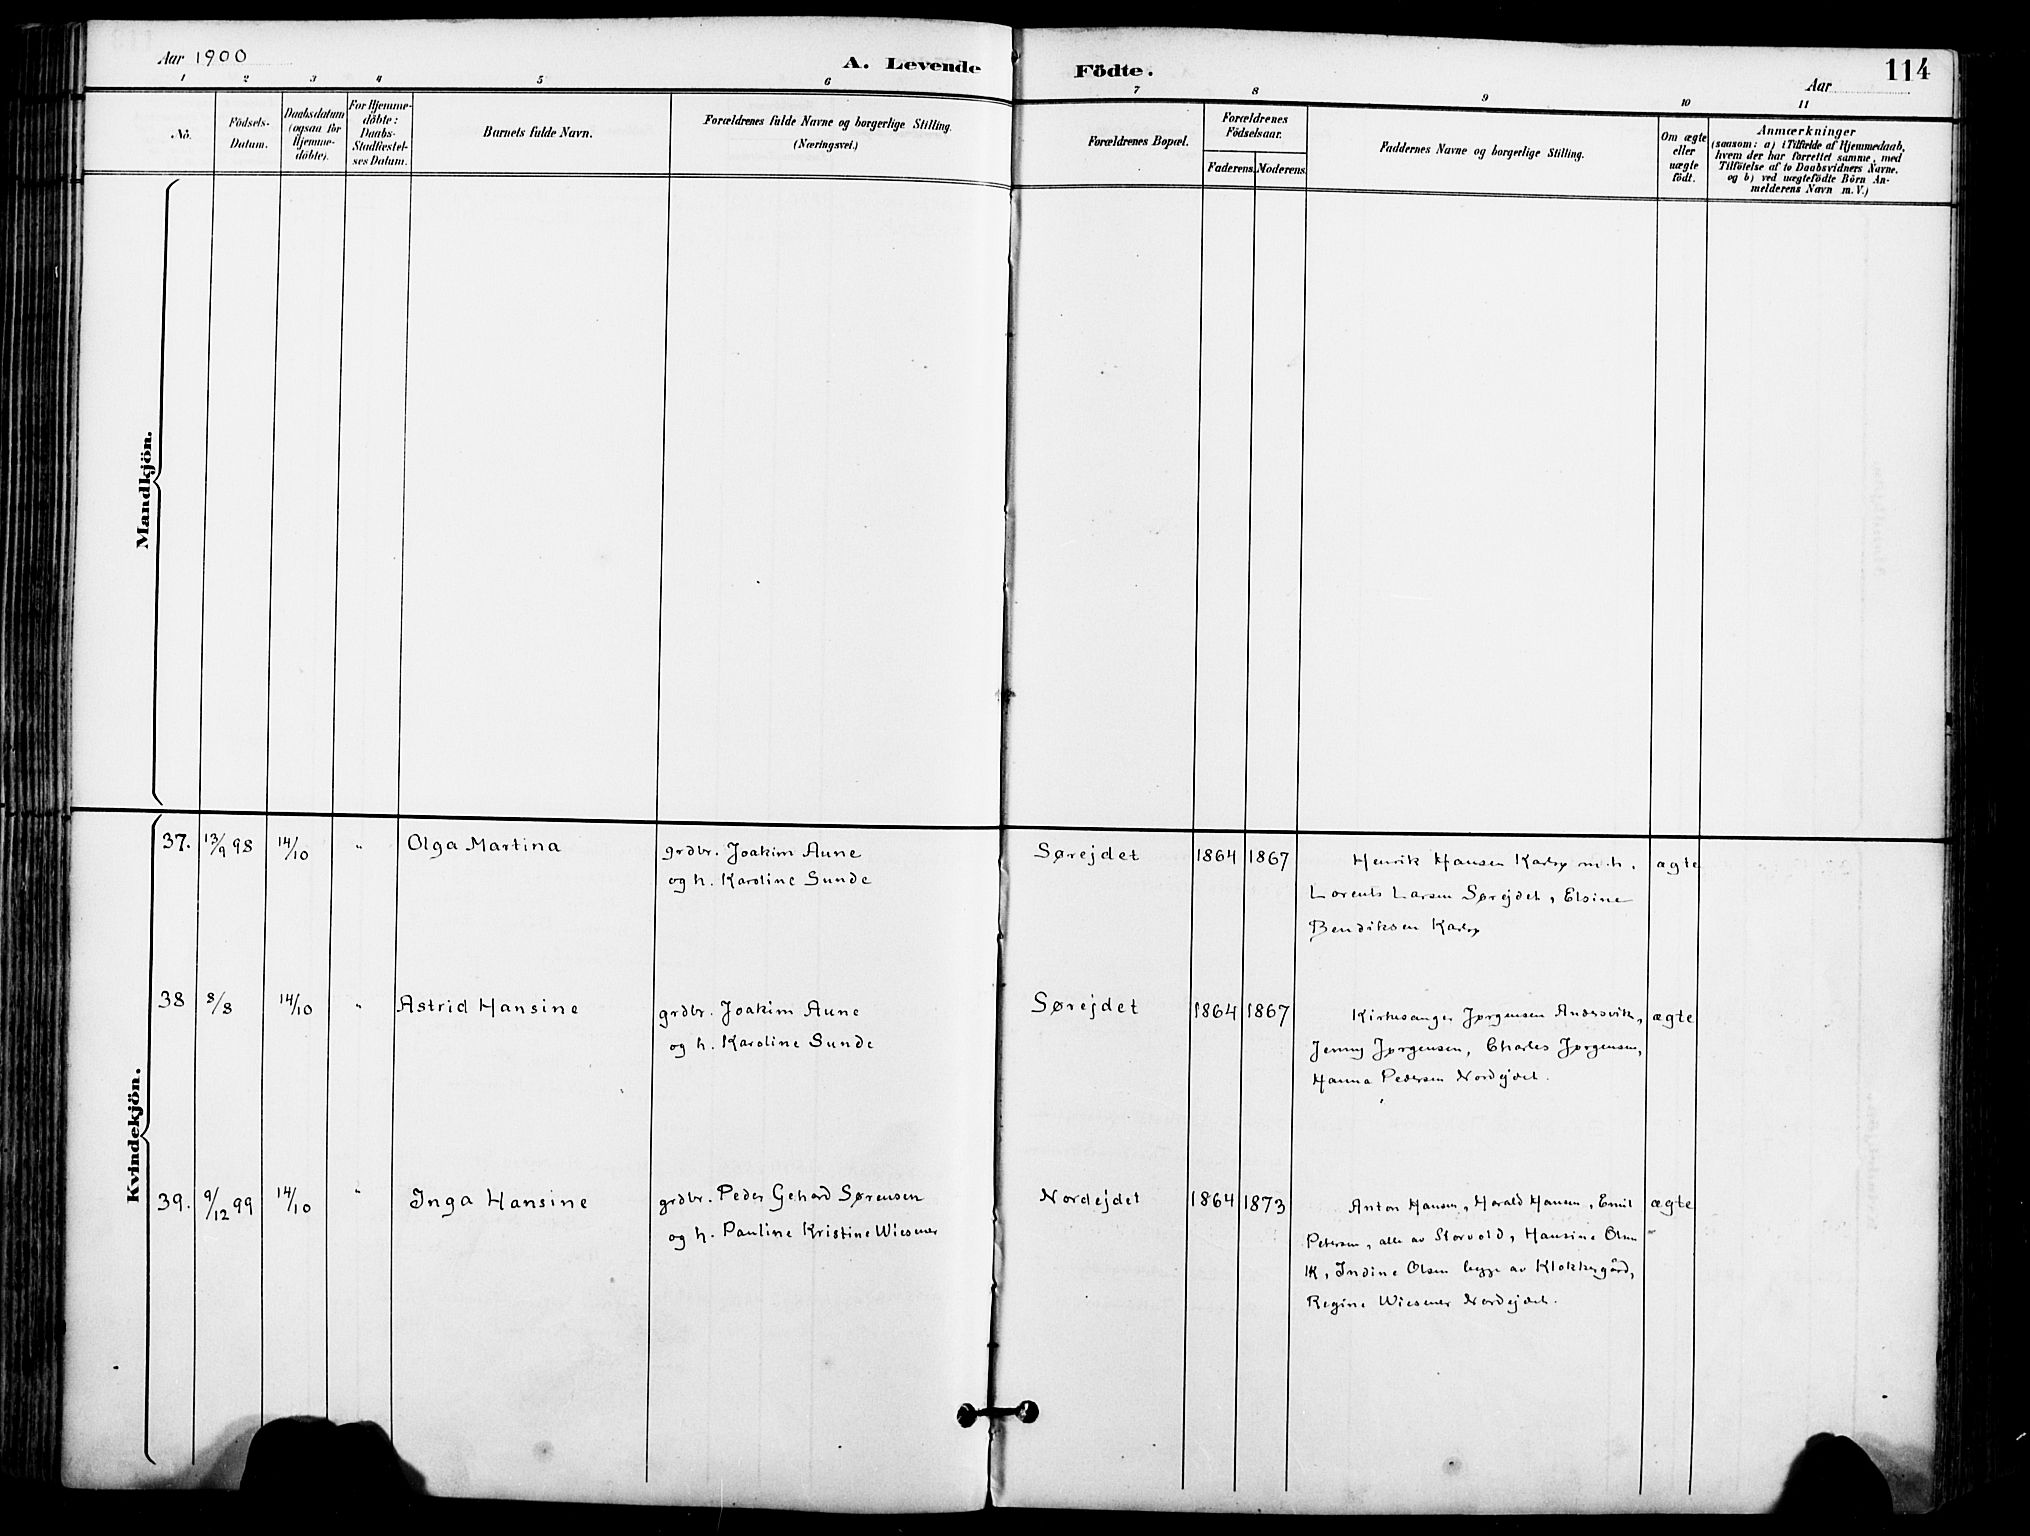 Aar 1900
A. Levende
Födte.
Aar
114
1 2 3 4 5 6 7 8 9 10 11
No.
Födsels-
Datum.
Daabsdatum
(ogsaa for
Hjemme-
döbte).
For Hjemme-
döbte:
Daabs-
Stadfæstel-
ses Datum.
Barnets fulde Navn.
Forældrenes fulde Navne og borgerlige Stilling.
(Næringsvei.)
Forældrenes Bopæl.
Forældrenes
Födselsaar.
Faderens.
Moderens.
Faddernes Navne og borgerlige Stilling.
Om ægte
eller
uægte
födt.
Anmærkninger
(saasom: a) i Tilfælde af Hjemmedaab,
hvem der har forrettet samme, med
Tilföielse af to Daabsvidners Navne.
og b) ved uægtefödte Börn An-
melderens Navn m. V.)
Mandkjön.
Kvindekjön.
37. 13/9 98 14/10 " Olga Martina
grdbr. Joakim Aune
og h. Karoline Sunde
Sørejdet 1864 1867
Henrik Hansen Karlsø m.h.
Lorents Larsen Sørejdet, Elsine
Bendiksen Karlsø
ægte
38 8/8 14/10 " Astrid Hansine
grdbr. Joakim Aune
og h. Karoline Sunde
Sørejdet 1864 1867
Kirkesanger Jørgensen Andersvik,
Jenny Jørgensen, Charles Jørgensen,
Hanna Pedersen Nordejdet.
ægte
39. 9/12 99 14/10 " Inga Hansine
grdbr. Peder Gehard Sørensen
og h. Pauline Kristine Wiesener
Nordejdet 1864 1873
Anton Hansen, Harald Hansen, Emil
Petersen, alle av Storvold, Hansine Olsen
K, Indine Olsen begge av Klokkergård,
Regine Wiesener Nordejdet.
ægte